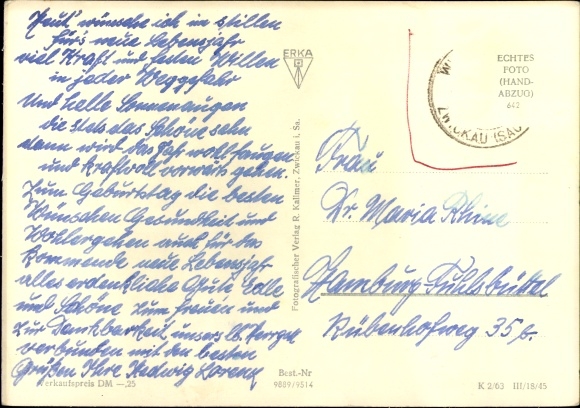 Heut' wünsche ich im stillen
für's neue Lebensjahr
viel Kraft und festen Willen
in jeder Weggefahr
Und helle Sonnenaugen
die stets das Schöne sehn
dann wird das Jahr wohl taugen
und kraftvoll vorwärts gehn.
Zum Geburtstag die besten
Wünschen Gesundheit und
Wohlergehen auch für das
kommende neue Lebensjahr
alles erdenkliche Gute Edle
und Schöne zum freuen und
zur Dankbarkeit unsers lb. Herrgott
verbunden mit den besten
Grüßen Ihre Hedwig Lorenz
erkaufspreis DM —,25
ERKA
Fotografischer Verlag R. Kallmer, Zwickau i. Sa.
Best.-Nr
9889/9514
ZWICKAU (SAC
ECHTES
FOTO
(HAND-
ABZUG)
642
Frau
Dr. Maria Rhine
Hamburg-Fuhlsbüttel
Rübenhofweg 35 b.
K 2/63 III/18/45